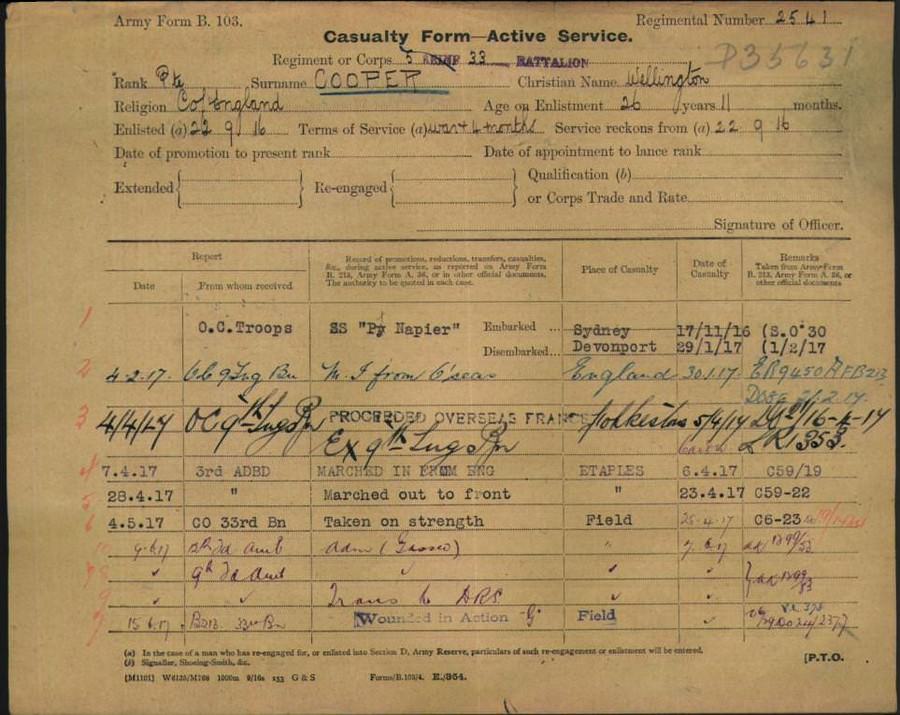 Army Form B. 103.
Regimental Number 2541
Casualty Form—Active Service.
Regiment or Corps 5 REINF 33 BATTALION
P35631
Rank Pte Surname COOPER Christian Name Wellington
Religion C of England Age on Enlistment 26 years 11 months.
Enlisted (a) 22 9 16 Terms of Service (a) war & 4 months Service reckons from (a) 22 9 16
Date of promotion to present rank Date of appointment to lance rank
Extended Re-engaged Qualification (b)
or Corps Trade and Rate
Signature of Officer.
Report
Date From whom received
Record of promotions, reductions, transfers, casualties,
&c., during active service, as reported on Army Form
B. 213, Army Form A. 36, or in other official documents.
The authority to be quoted in each case.
Place of Casualty
Date of Casualty
Remarks
Taken from Army Form
B. 213, Army Form A. 36, or
other official documents
1
O.C.Troops SS "Pt Napier" Embarked ... Sydney 17/11/16 (S.O 30
Disembarked... Devonport 29/1/17 (1/2/17
2 4.2.17. M.I from O'seas England 30.1.17.
3 4/4/17 OC 9th PROCEEDED OVERSEAS FRANCE 5/4/17
Ex 9th
4 7.4.17 3rd ADBD MARCHED IN FROM ENG ETAPLES 6.4.17 C59/19
5 28.4.17 " Marched out to front " 23.4.17 C59-22
6 4.5.17 CO 33rd Bn Taken on strength Field 25.4.17 C6-23
9.6.17 Adm (Gassed) " 7.6.17
9th Fd Amb
9 Trans to DRS
15.6.17 B213. 33rd Bn Wounded in Action "G" Field
(a) In the case of a man who has re-engaged for, or enlisted into Section D, Army Reserve, particulars of such re-engagement or enlistment will be entered.
(b) Signaller, Shoeing-Smith, &c.
[P.T.O.
G & S Forms/B.103/4. E./354.